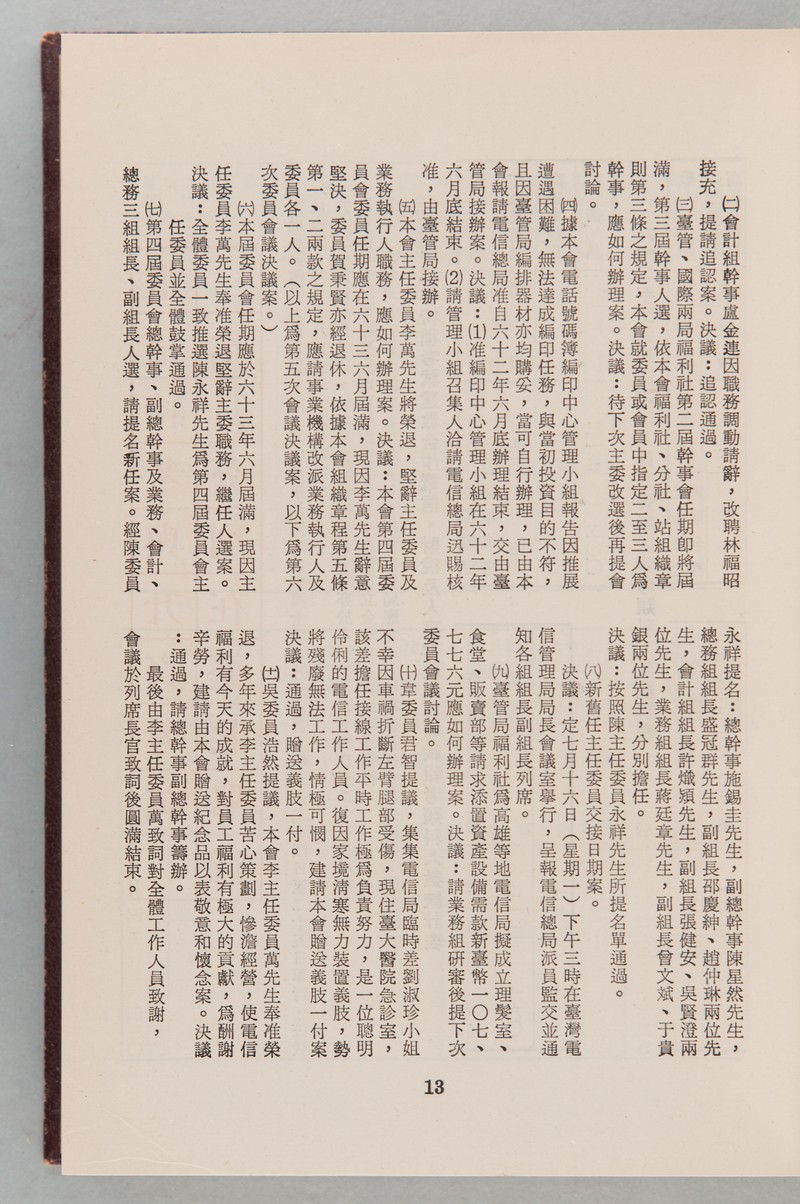 ㈡會計組幹事盧金連因職務調動請辭，改聘林福昭
接充，提請追認案。決議：追認通過。
㈢臺管、國際兩局福利社第二屆幹事會任期卽將屆
滿，第三屆幹事人選，依本會福利社、分社、站組織章
則第三條之規定，本會就委員或會員中指定二至三人爲
幹事，應如何辦理案。決議：待下次主委改選後再提會
討論。
㈣據本會電話號碼簿編印中心管理小組報告因推展
遭遇困難，無法達成編印任務，與當初投資目的不符，
且因臺管局編排器材亦均購妥，當可自行辦理，已由本
會報請電信總局准自六十二年六月底辦理結束，交由臺
管局接辦案。決議：⑴准編印中心管理小組在六十二年
六月底結束。⑵請管理小組召集人洽請電信總局迅賜核
准，由臺管局接辦。
㈤本會主任委員李萬先生將榮退，堅辭主任委員及
業務執行人職務，應如何辦理案。決議：本會第四屆委
員會委員任期應在六十三六月屆滿，現因李萬先生辭意
堅決，委員賀秉賢亦經退休，依據本會組織章程第五條
第一、二兩款之規定，應請事業機構改派業務執行人及
委員各一人。（以上爲第五次會議決議案，以下爲第六
次委員會議決議案。）
㈥本屆委員會任期應於六十三年六月屆滿，現因主
任委員李萬先生奉准榮退堅辭主委職務，繼任人選案。
決議：全體委員一致推選陳永祥先生爲第四屆委員會主
任委員並全體鼓掌通過。
㈦第四屆委員會總幹事、副總幹事及業務、會計、
總務三組組長、副組長人選，請提名新任案。經陳委員
永祥提名：總幹事施錫圭先生，副總幹事陳星然先生，
總務組組長盛冠群先生，副組長邵慶紳、趙仲琳兩位先
生，會計組組長許熾潁先生，副組長張健安、吳賢澄兩
位先生，業務組組長蔣廷章先生，副組長曾文斌、于貴
銀兩位先生，分別擔任。
決議：按照陳主任委員永祥先生所提名單通過。
㈧新舊任主任委員交接日期案。
決議：定七月十六日（星期一）下午三時在臺灣電
信管理局局長會議室舉行，呈報電信總局派員監交並通
知各組組長副組長列席。
㈨臺管局福利社爲高雄等地電信局擬成立理髮室、
食堂、販賣部等請求添置資產設備需款新臺幣一〇七、
七七六元應如何辦理案。決議：請業務組研審後提下次
委員會議討論。
㈩章委員君智提議，集集電信局臨時差劉淑珍小姐
不幸因車禍折斷左臂腿部受傷，現住臺大醫院急診室，
該差擔任接線工作平時工作極爲負責努力，是一位聰明
伶俐的電信工作人員。復因家境清寒無力裝置義肢，勢
將殘廢無法工作，情極可憫，建請本會贈送義肢一付案
決議：通過，贈送義肢一付。
(土)吳委員浩然提議，本會李主任委員萬先生奉准榮
退，多年來承李主任委員苦心策劃，慘澹經營，使電信
福利有今天的成就，對員工福利有極大的貢獻，爲酬謝
辛勞，建請由本會贈送紀念品以表敬意和懷念案。決議
：通過，請總幹事副總幹事籌辦。
最後由李主任委員萬致詞對全體工作人員致謝，
會議於列席長官致詞後圓滿結束。
13